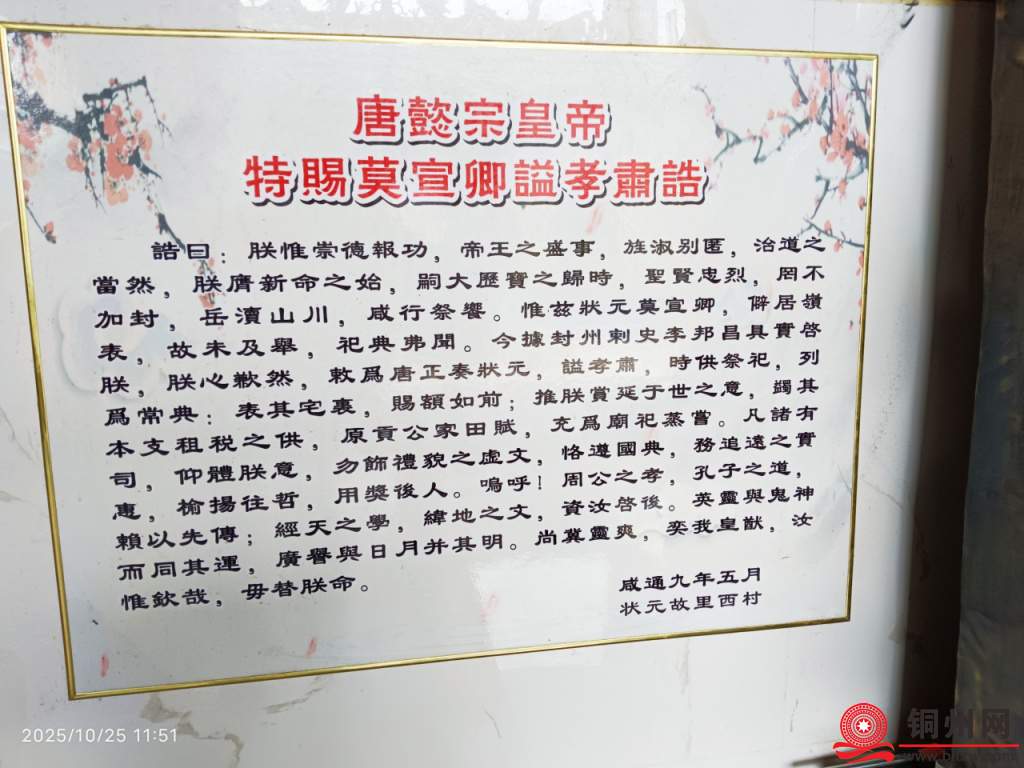 唐懿宗皇帝
特賜莫宣卿謚孝肅誥
誥曰：朕惟崇德報功，帝王之盛事，旌淑别匿，治道之
當然，朕膺新命之始，嗣大歷寶之歸時，聖賢忠烈，罔不
加封，岳瀆山川，咸行祭饗。惟兹狀元莫宣卿，僻居嶺
表，故未及舉，祀典弗聞。今據封州刺史李邦昌具實啓
朕，朕心歉然，敕爲唐正奏狀元，謚孝肅，時供祭祀，列
爲常典：表其宅裏，賜額如前；推朕賞延于世之意，蠲其
本支租税之供，原貢公家田賦，充爲廟祀蒸嘗。凡諸有
司，仰體朕意，勿飾禮貌之虚文，恪遵國典，務追遠之實
惠，揄揚往哲，用獎後人。嗚呼！周公之孝，孔子之道，
賴以先傳；經天之學，緯地之文，資汝啓後。英靈與鬼神
而同其運，廣譽與日月并其明。尚冀靈爽，奕我皇猷，汝
惟欽哉，毋替朕命。
咸通九年五月
状元故里西村
2025/10/25 11:51
铜州网